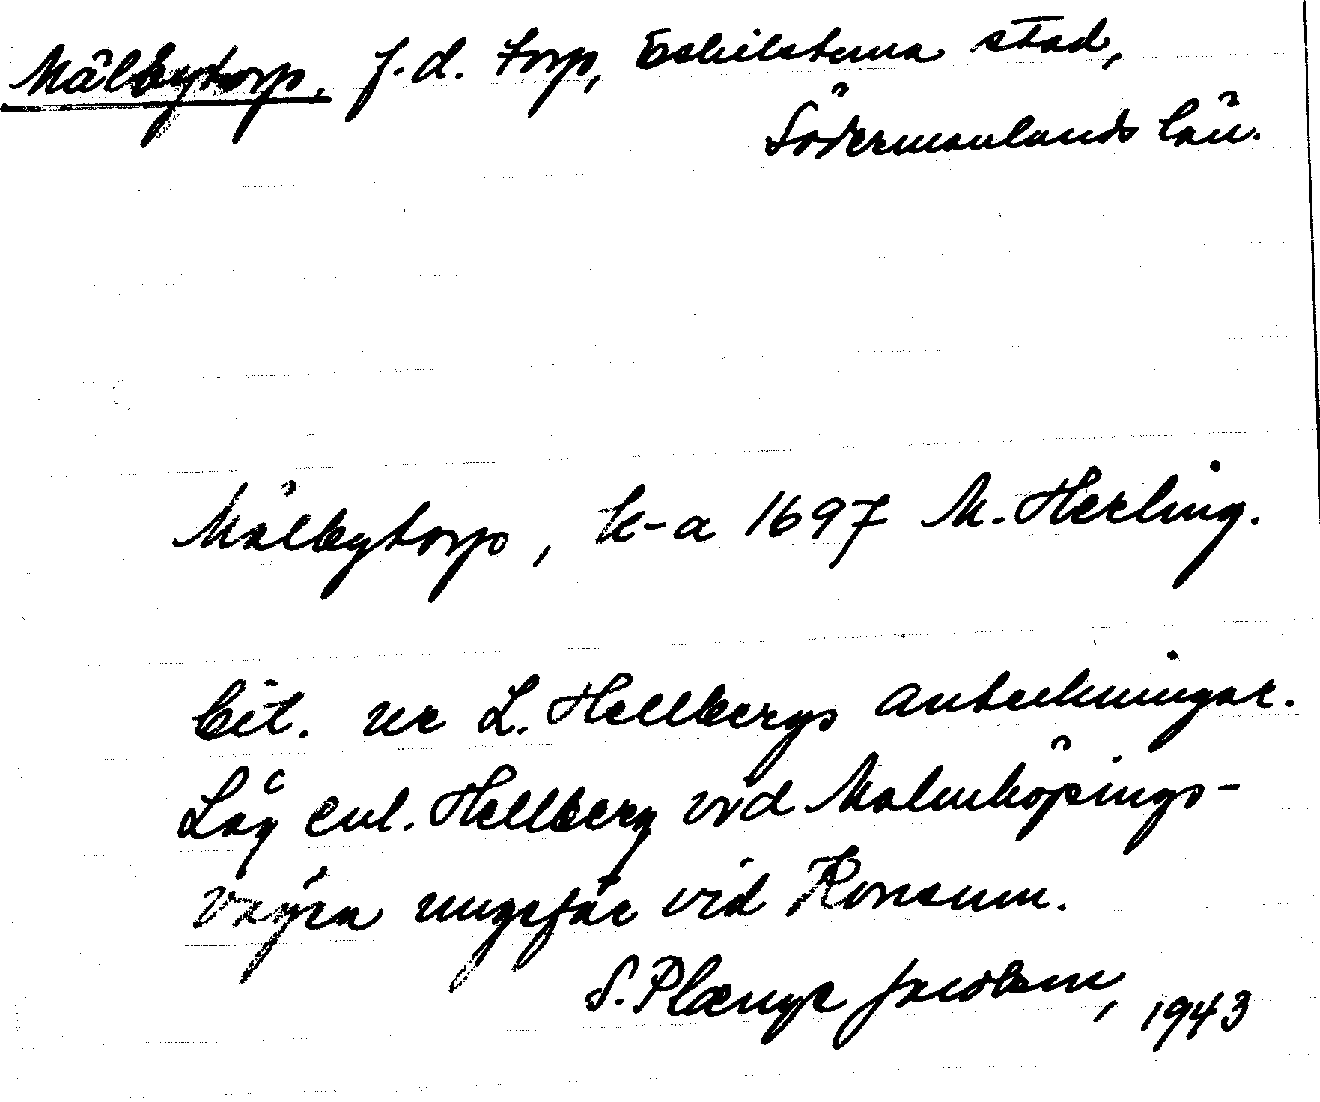 Mälbytorp, f.d. torp, Eskilstuna stad,
Södermanlands län.
Mälbytorp, k-a 1697 M. Herling.
Cit. ur L. Hellbergs anteckningar.
Låg enl. Hellberg vid Malmköpings-
vägen ungefär vid Konsum.
S. Plænge Jacobson, 1943